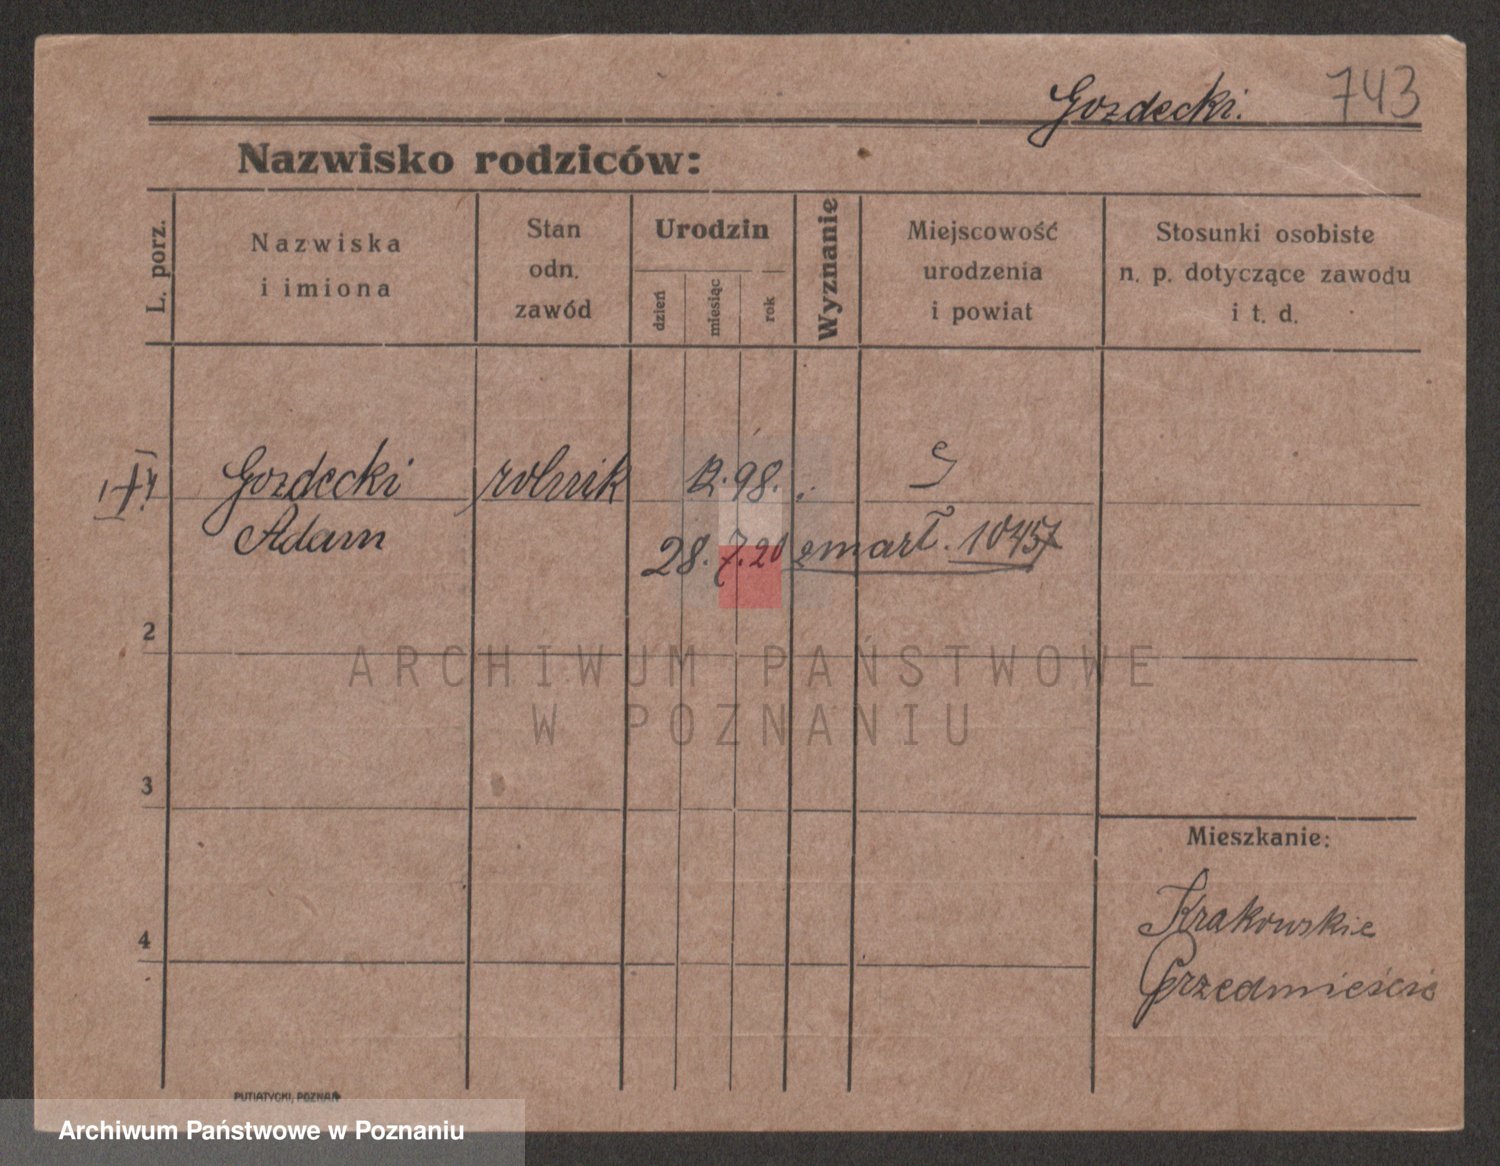 Gozdecki. 743
Nazwisko rodziców:
L. porz.
Nazwiska
i imiona
Stan
odn.
zawód
Urodzin
dzień
miesiąc
rok
Wyznanie
Miejscowość
urodzenia
i powiat
Stosunki osobiste
n. p. dotyczące zawodu
i t. d.
Gozdecki rolnik 98.
Adam 28. 7. 20 zmarł.
2
ARCHIWUM PAŃSTWOWE
W POZNANIU
3
Mieszkanie:
Krakowskie
4
Przedmieście
PUTIATYCKI, POZNAŃ
Archiwum Państwowe w Poznaniu